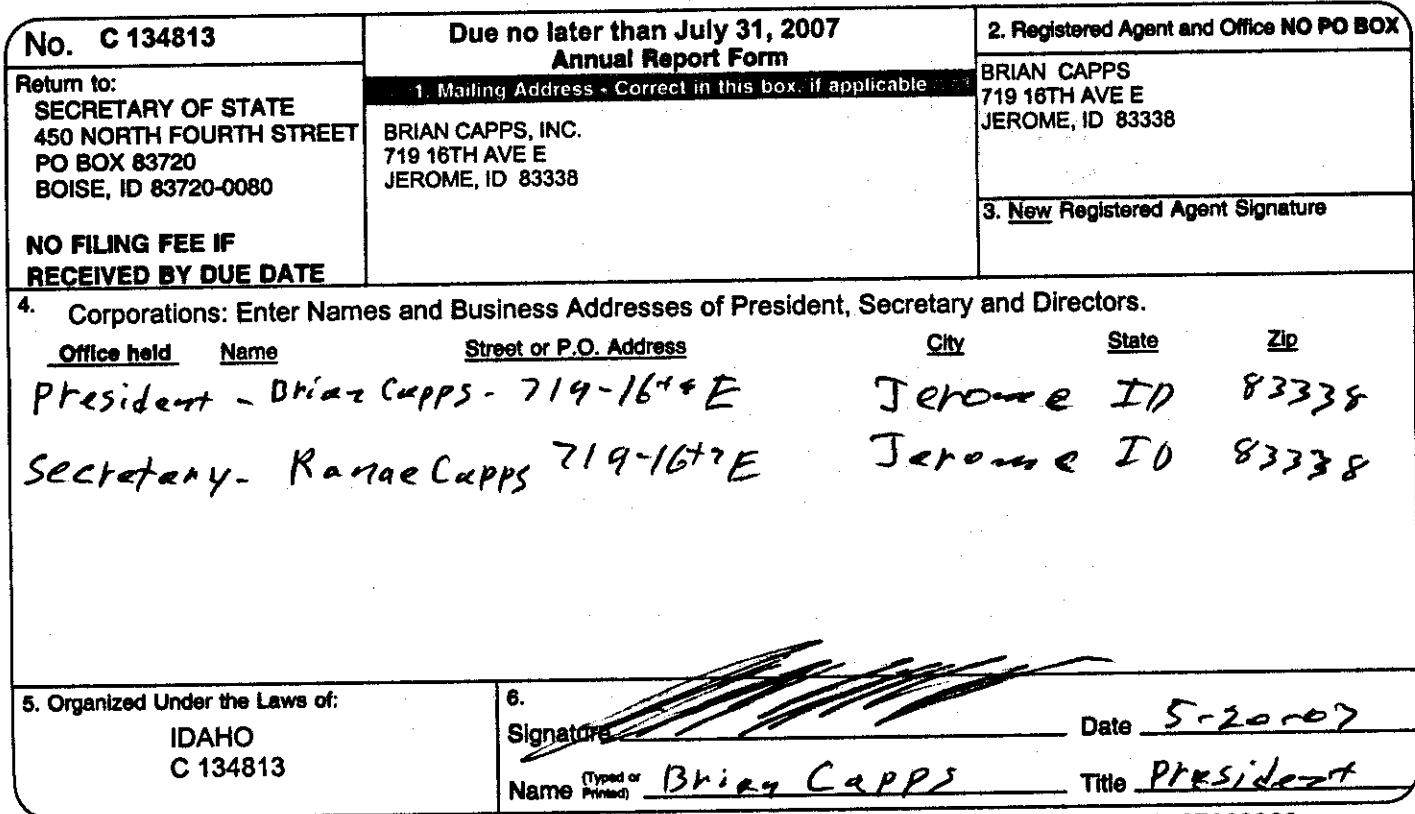 No. C 134813
Return to:
SECRETARY OF STATE
450 NORTH FOURTH STREET
PO BOX 83720
BOISE, ID 83720-0080
NO FILING FEE IF
RECEIVED BY DUE DATE
Due no later than July 31, 2007
Annual Report Form
1. Mailing Address - Correct in this box, if applicable
BRIAN CAPPS, INC.
719 16TH AVE E
JEROME, ID 83338
2. Registered Agent and Office NO PO BOX
BRIAN CAPPS
719 16TH AVE E
JEROME, ID 83338
3. New Registered Agent Signature
4. Corporations: Enter Names and Business Addresses of President, Secretary and Directors.
Office held Name Street or P.O. Address City State Zip
President - Brian Capps - 719-16th E Jerome ID 83338
Secretary - Ranae Capps 719-16th E Jerome ID 83338
5. Organized Under the Laws of:
IDAHO
C 134813
6.
Signature Date 5-20-07
Name (Typed or Printed) Brian Capps Title President